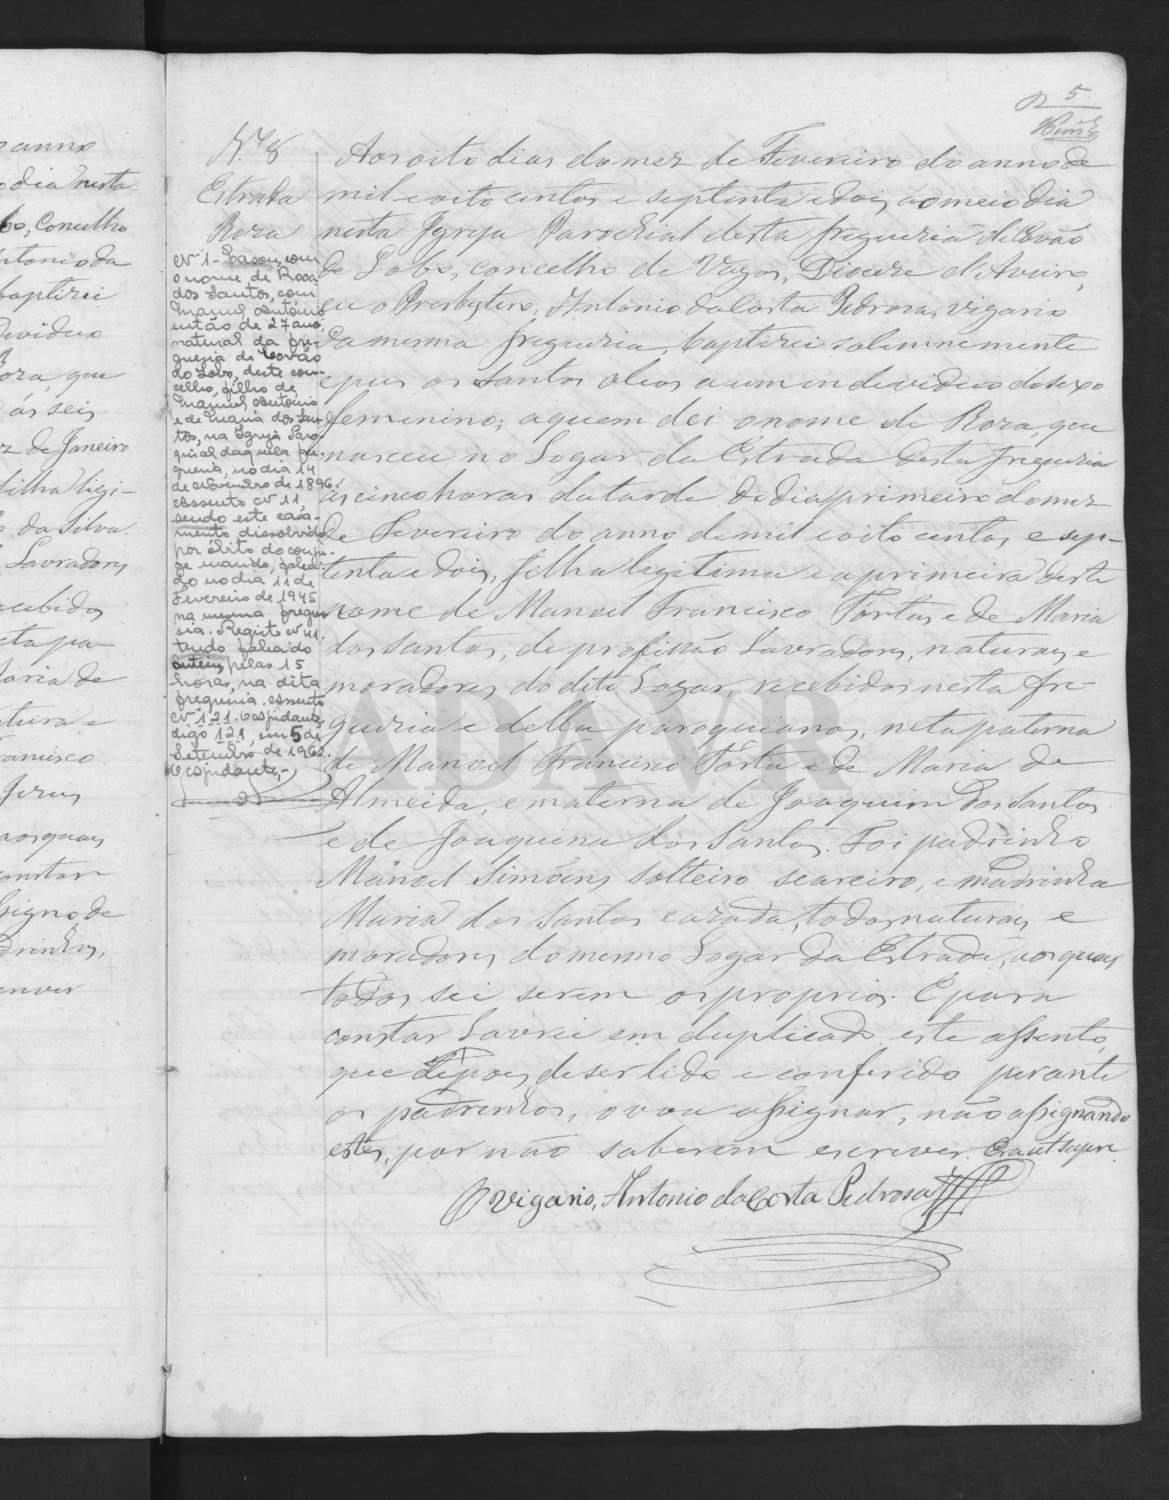 5
N.º 8
Estrada
Roza
Aos oito dias do mez de Fevereiro do anno de
mil e oito centos e septenta e dois, ao meio dia
nesta Igreja Parochial desta freguezia de Covão
do Lobo, concelho de Vagos, Diocese d'Aveiro,
eu o Presbytero, Antonio da Costa Pedrosa, vigario
da mesma freguezia, baptizei solemnemente
e puz os Santos oleos a um individuo do sexo
femenino; a quem dei o nome de Roza, que
nasceu no Logar da Estrada desta freguezia
ás cinco horas da tarde do dia primeiro do mez
de Fevereiro do anno de mil e oito centos e sep-
tenta e dois, filha legitima e a primeira deste
nome de Manoel Francisco Tortas e de Maria
dos santos, de profissão Lavradores, naturaes e
moradores do dito Logar, recebidos nesta fre-
guezia e della paroquianos, neta paterna
de Manoel Francisco Tórta e de Maria de
Almeida, e materna de Joaquim dos Santos
e de Joaquina dos Santos. Foi padrinho
Manoel Simões, solteiro seareiro, e madrinha
Maria dos Santos cazada, todos naturaes e
moradores do mesmo Logar da Estrada, os quaes
todos sei serem os proprios. E para
constar Lavrei em duplicado este assento,
que depois de ser lido e conferido perante
os padrinhos, o vou assignar, não assignando
estes, por não saberem escrever. Era ut supra
O vigario, Antonio da Costa Pedrosa
Nº 1 - Casou, com
o nome de Rosa
dos Santos, com
Manuel António
então de 27 anos,
natural da fre-
guesia de Covão
do Lobo, deste con-
celho, filho de
Manuel António
e de Maria dos San-
tos, na Igreja Paro-
quial daquela fre-
guesia, no dia 14
de Novembro de 1896.
Assento nº 11,
sendo este casa-
mento dissolvido
por óbito do conju-
ge marido, faleci-
do no dia 11 de
Fevereiro de 1945
na mesma fregue-
sia. Registo nº 41.
tendo falecido
ontem, pelas 15
horas, na dita
freguesia. Assento
nº 121. Vagos
digo 121, em 5 de
Setembro de 1962.
ADAVR
anno
dia nesta
Concelho
Antonio da
baptizei
individuo
Roza, que
ás seis
mez de Janeiro
filha legi-
da Silva
Lavradores
recebidos
neta pa-
Maria de
Francisco
Jesus
aos quaes
constar
assigno de
padrinhos,
escrever